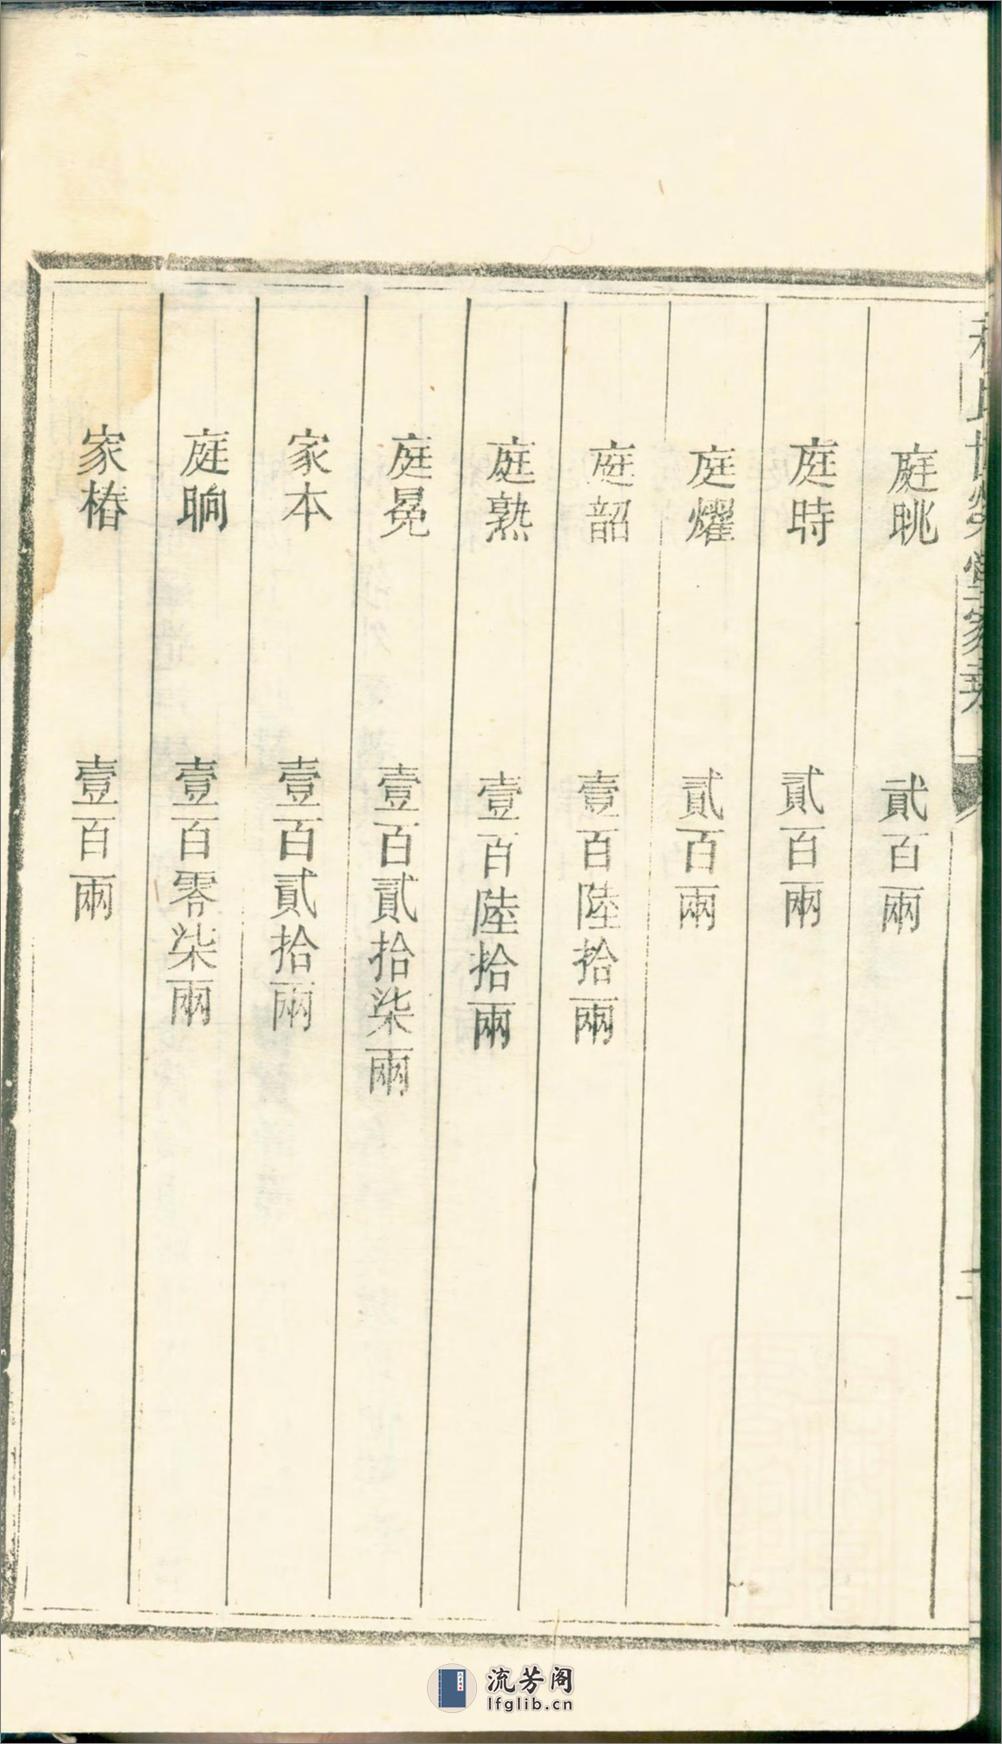 庭眺 貳百兩
庭時 貳百兩
庭燿 貳百兩
庭韶 壹百陸拾兩
庭熟 壹百陸拾兩
庭冕 壹百貳拾柒兩
家本 壹百貳拾兩
庭晌 壹百零柒兩
家椿 壹百兩
氏世榮堂家乘
流芳阁
lfglib.cn